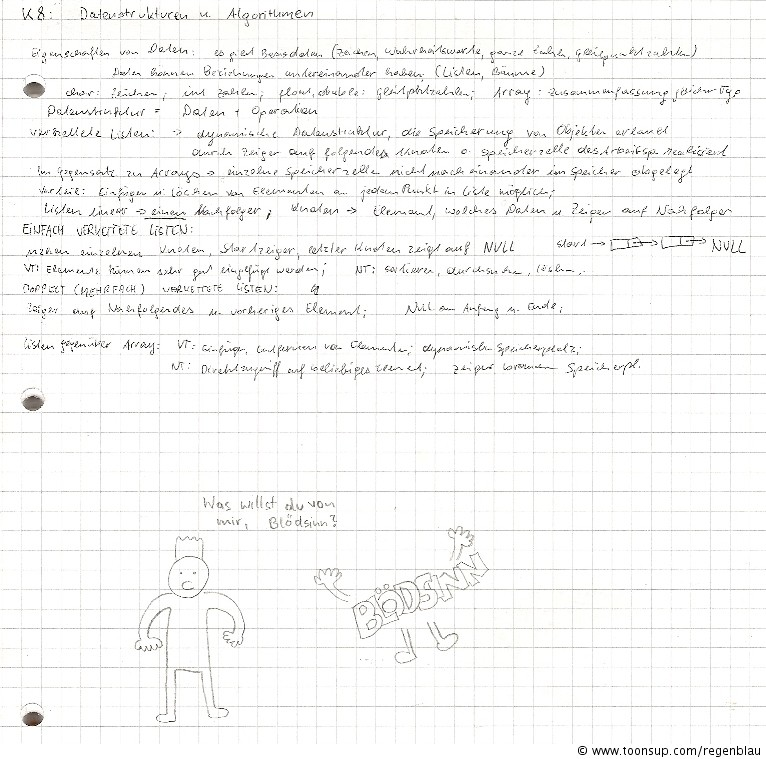 K8: Datenstrukturen u. Algorithmen
Eigenschaften von Daten: es gibt Basisdaten (Zeichen, Wahrheitswerte, ganze Zahlen, Gleitpunktzahlen)
Daten können Beziehungen untereinander haben (Listen, Bäume)
char: Zeichen; int Zahlen; float, double: Gleitpktzahlen; Array: Zusammenfassung gleicher Typ
Datenstruktur = Daten + Operation
verkettete Listen: → dynamische Datenstruktur, die Speicherung von Objekten erlaubt
durch Zeiger auf folgenden Knoten o. Speicherzelle des Arbeitssp. realisiert
Im Gegensatz zu Arrays → einzelne Speicherzelle nicht nacheinander im Speicher abgelegt
Vorteil: Einfügen u. Löschen von Elementen an jedem Punkt in Liste möglich;
Listen linear → einen Nachfolger; Knoten → Element, welches Daten u. Zeiger auf Nachfolger
EINFACH VERKETTETE LISTEN:
einzelnen Knoten, Startzeiger, letzter Knoten zeigt auf NULL start → → → NULL
VT: Elemente können sehr gut eingefügt werden; NT: sortieren, durchsuchen, löschen..
DOPPELT (MEHRFACH) VERKETTETE LISTEN:
Zeiger auf Nachfolgendes u. vorheriges Element; Null am Anfang u. Ende;
Listen gegenüber Array: VT: einfügen, entfernen von Elementen; dynamisch Speicherplatz;
NT: Direktzugriff auf beliebiges Element; Zeiger Speicherpl.
Was willst du von
mir, Blödsinn?
BLÖDSINN
© www.toonsup.com/regenblau